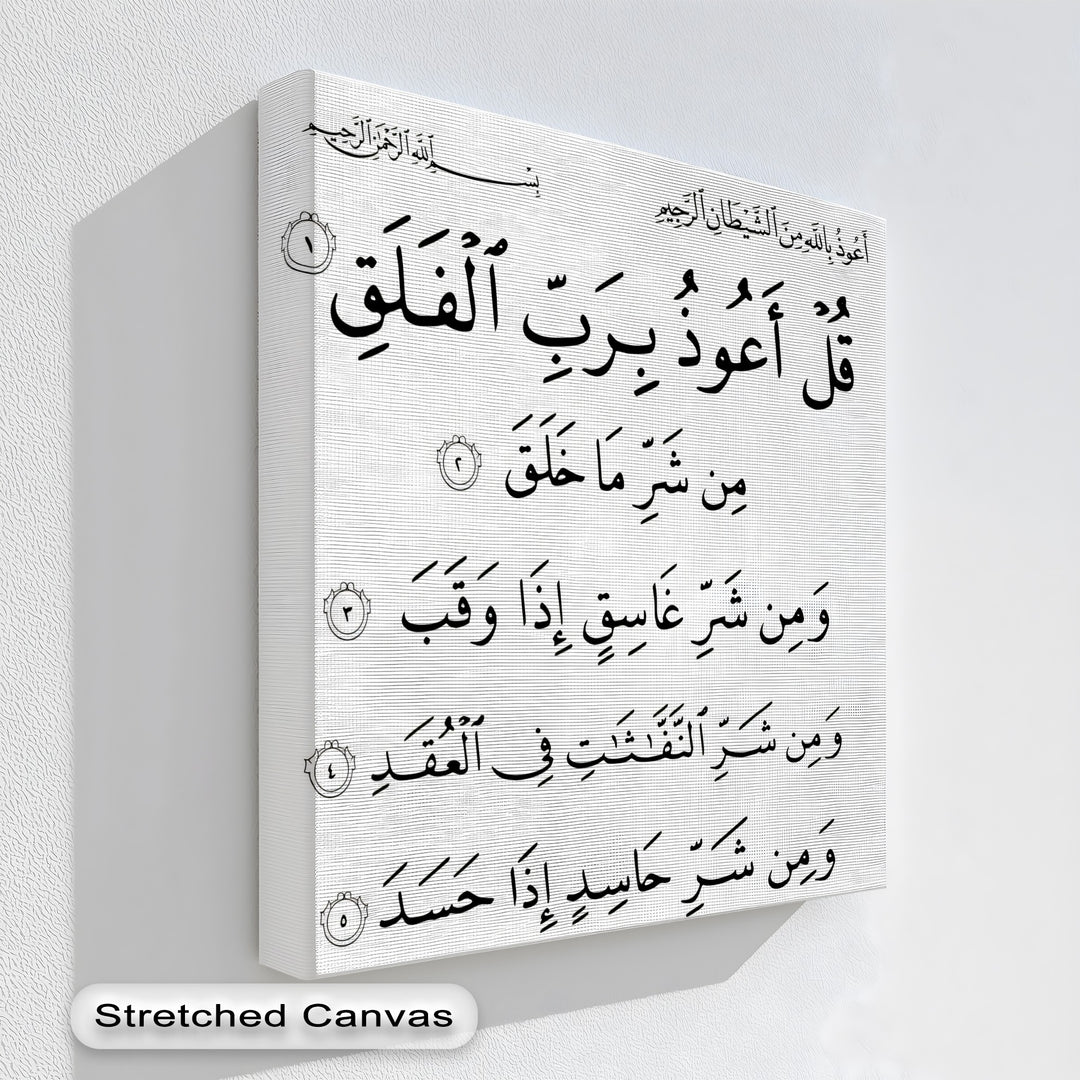 أَعُوذُ بِاللَّهِ مِنَ ٱلشَّيْطَانِ ٱلرَّجِيمِ
بِسْمِ ٱللَّهِ ٱلرَّحْمَٰنِ ٱلرَّحِيمِ
قُلْ أَعُوذُ بِرَبِّ ٱلْفَلَقِ ١
مِن شَرِّ مَا خَلَقَ ٢
وَمِن شَرِّ غَاسِقٍ إِذَا وَقَبَ ٣
وَمِن شَرِّ ٱلنَّفَّـٰثَـٰتِ فِى ٱلْعُقَدِ ٤
وَمِن شَرِّ حَاسِدٍ إِذَا حَسَدَ ٥
Stretched Canvas